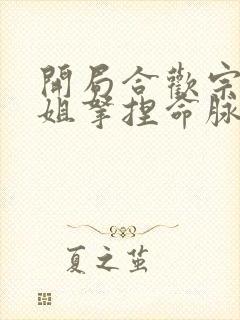 開局合歡宗
姐拿捏命脈
夏之茧